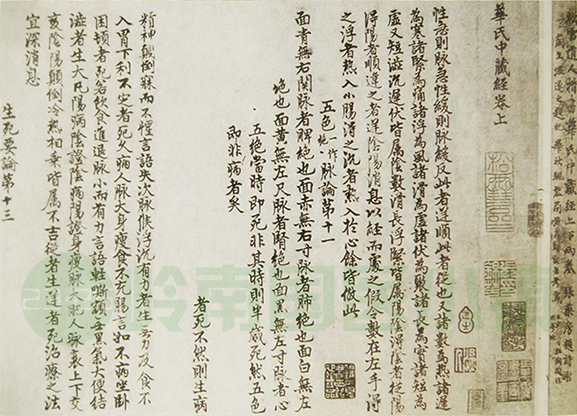 華氏中藏經卷上
性急則脈急性緩則脈緩反此者逆順此者從也又諸數為熱諸遲
為寒諸緊為痛諸浮為風諸滑為虛諸伏為聚諸長為實諸短為
虛又短澁沉遲伏皆屬陰數滑長浮緊皆屬陽陰得陰者從陽
得陽者順違之者逆陰陽消息以經而處之假令數在左手得
之浮者熱入小腸得之沉者熱入於心餘皆倣此
五色絶一作脈論第十一
面青無右関脈者脾絶也面赤無右寸脈者肺絶也面白無左
絶也面黃無左尺脈者腎絶也面黑無左寸脈者心
五絶當時即死非其時則半歲死然五色
即非病者矣
者死不然則生病
精神顛倒寐而不惺言語失次脈候浮沉有力者生無力及食不
入胃下利不定者死久病人脈大身瘦食不充腸言如不病坐卧
困頓者死若飲食進退脈小而有力言語輕嘶額無黑氣大便結
澁者生大凡陽病陰證陰病陽證身瘦脈大肥人脈衰上下交
變陰陽顛倒冷熱相乘皆屬不吉從者生逆者死治療之法
宜深消息
生死要論第十三